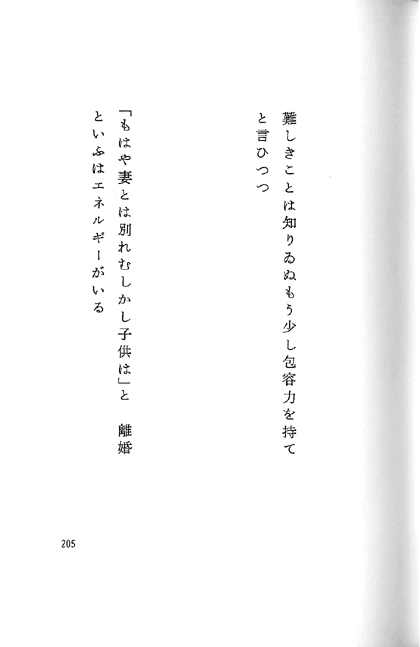 難しきことは知りゐぬもう少し包容力を持て
と言ひつつ
「もはや妻とは別れむしかし子供は」と　離婚
といふはエネルギーがいる
205